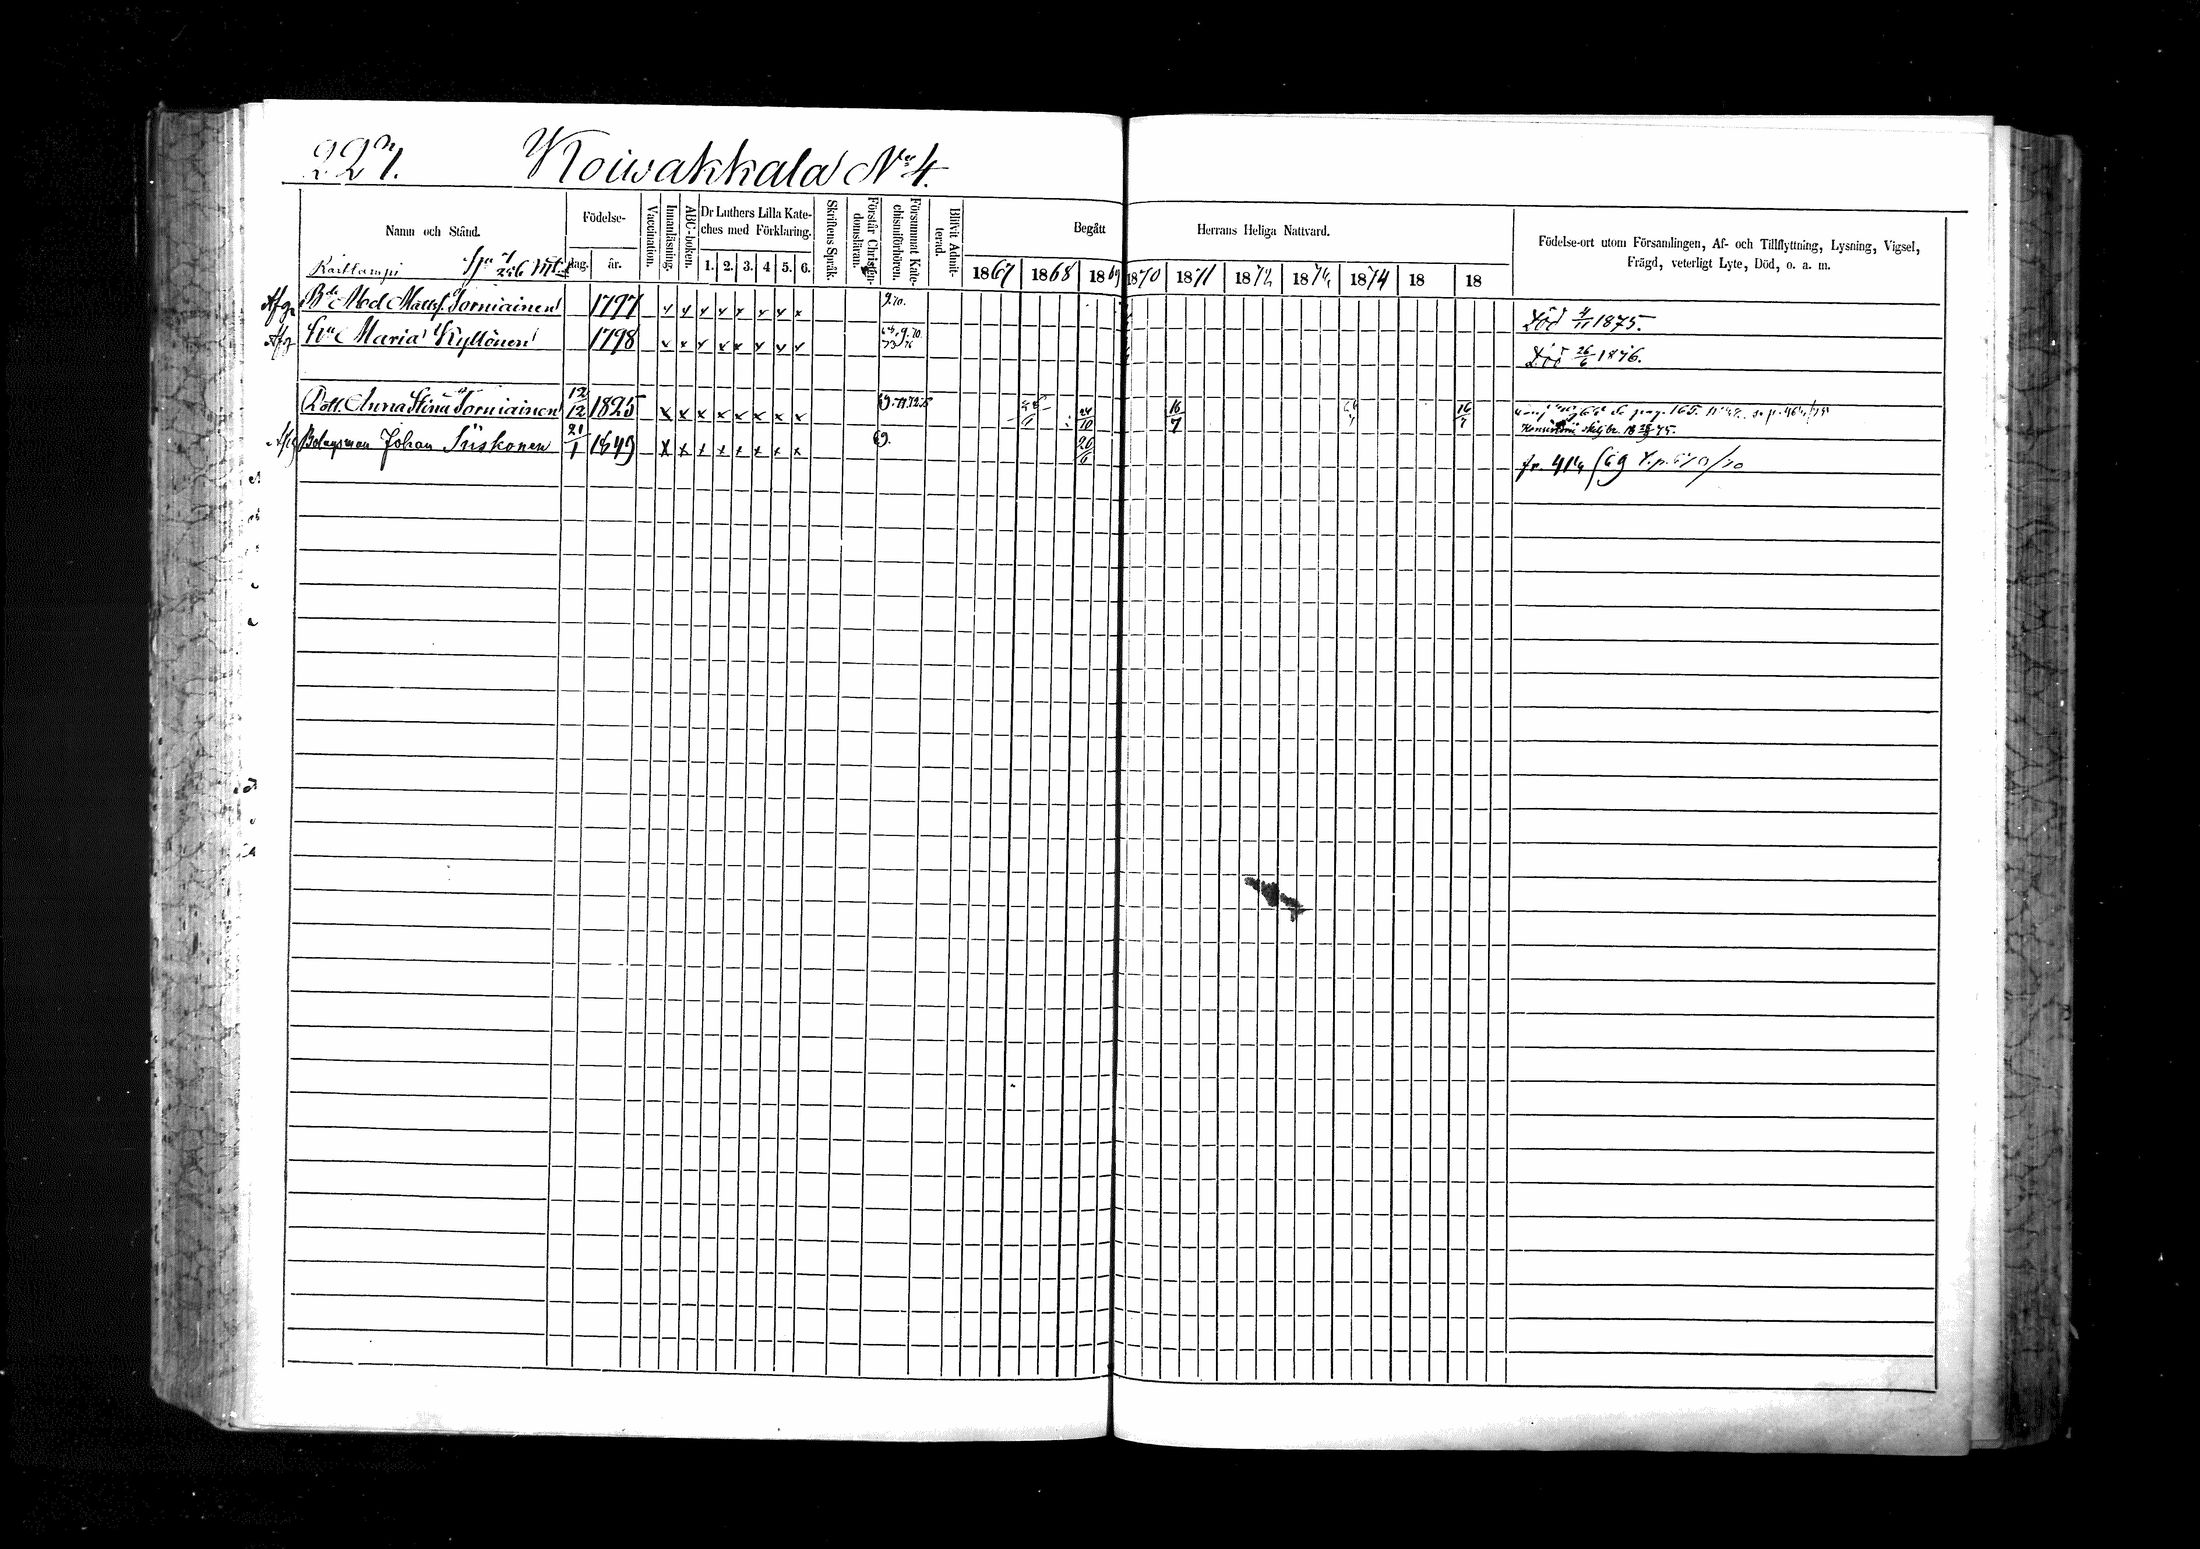 227.
Koiwakkala No 4.
Namn och Stånd.
Födelse-
dag.
år.
Vaccination.
Innanläsning.
ABC-boken.
Dr Luthers Lilla Kate-
ches med Förklaring.
1. 2. 3. 4 5. 6.
Skriftens Språk.
Förstår Christen-
domsläran.
Försummat Kate-
chismiförhören.
Blifvit Admit-
terad.
Begått Herrans Heliga Nattvard.
1867 1868 1869 1870 1871 1872 187 1874 18 18
Födelse-ort utom Församlingen, Af- och Tillflyttning, Lysning, Vigsel,
Frägd, veterligt Lyte, Död, o. a. m.
Karilampi
Bde Abel Mattsf. Torniainen 1797 Död 11 1875.
Hu Maria Kyllönen 1798 Död 26/6 1876.
Dott. Anna Stina Torniainen 12/12 1825 69. 24/10 16/7 pag. 165.
Bolagsman Johan Siiskonen 21/1 1849 69. 20/6 fr. 414/69